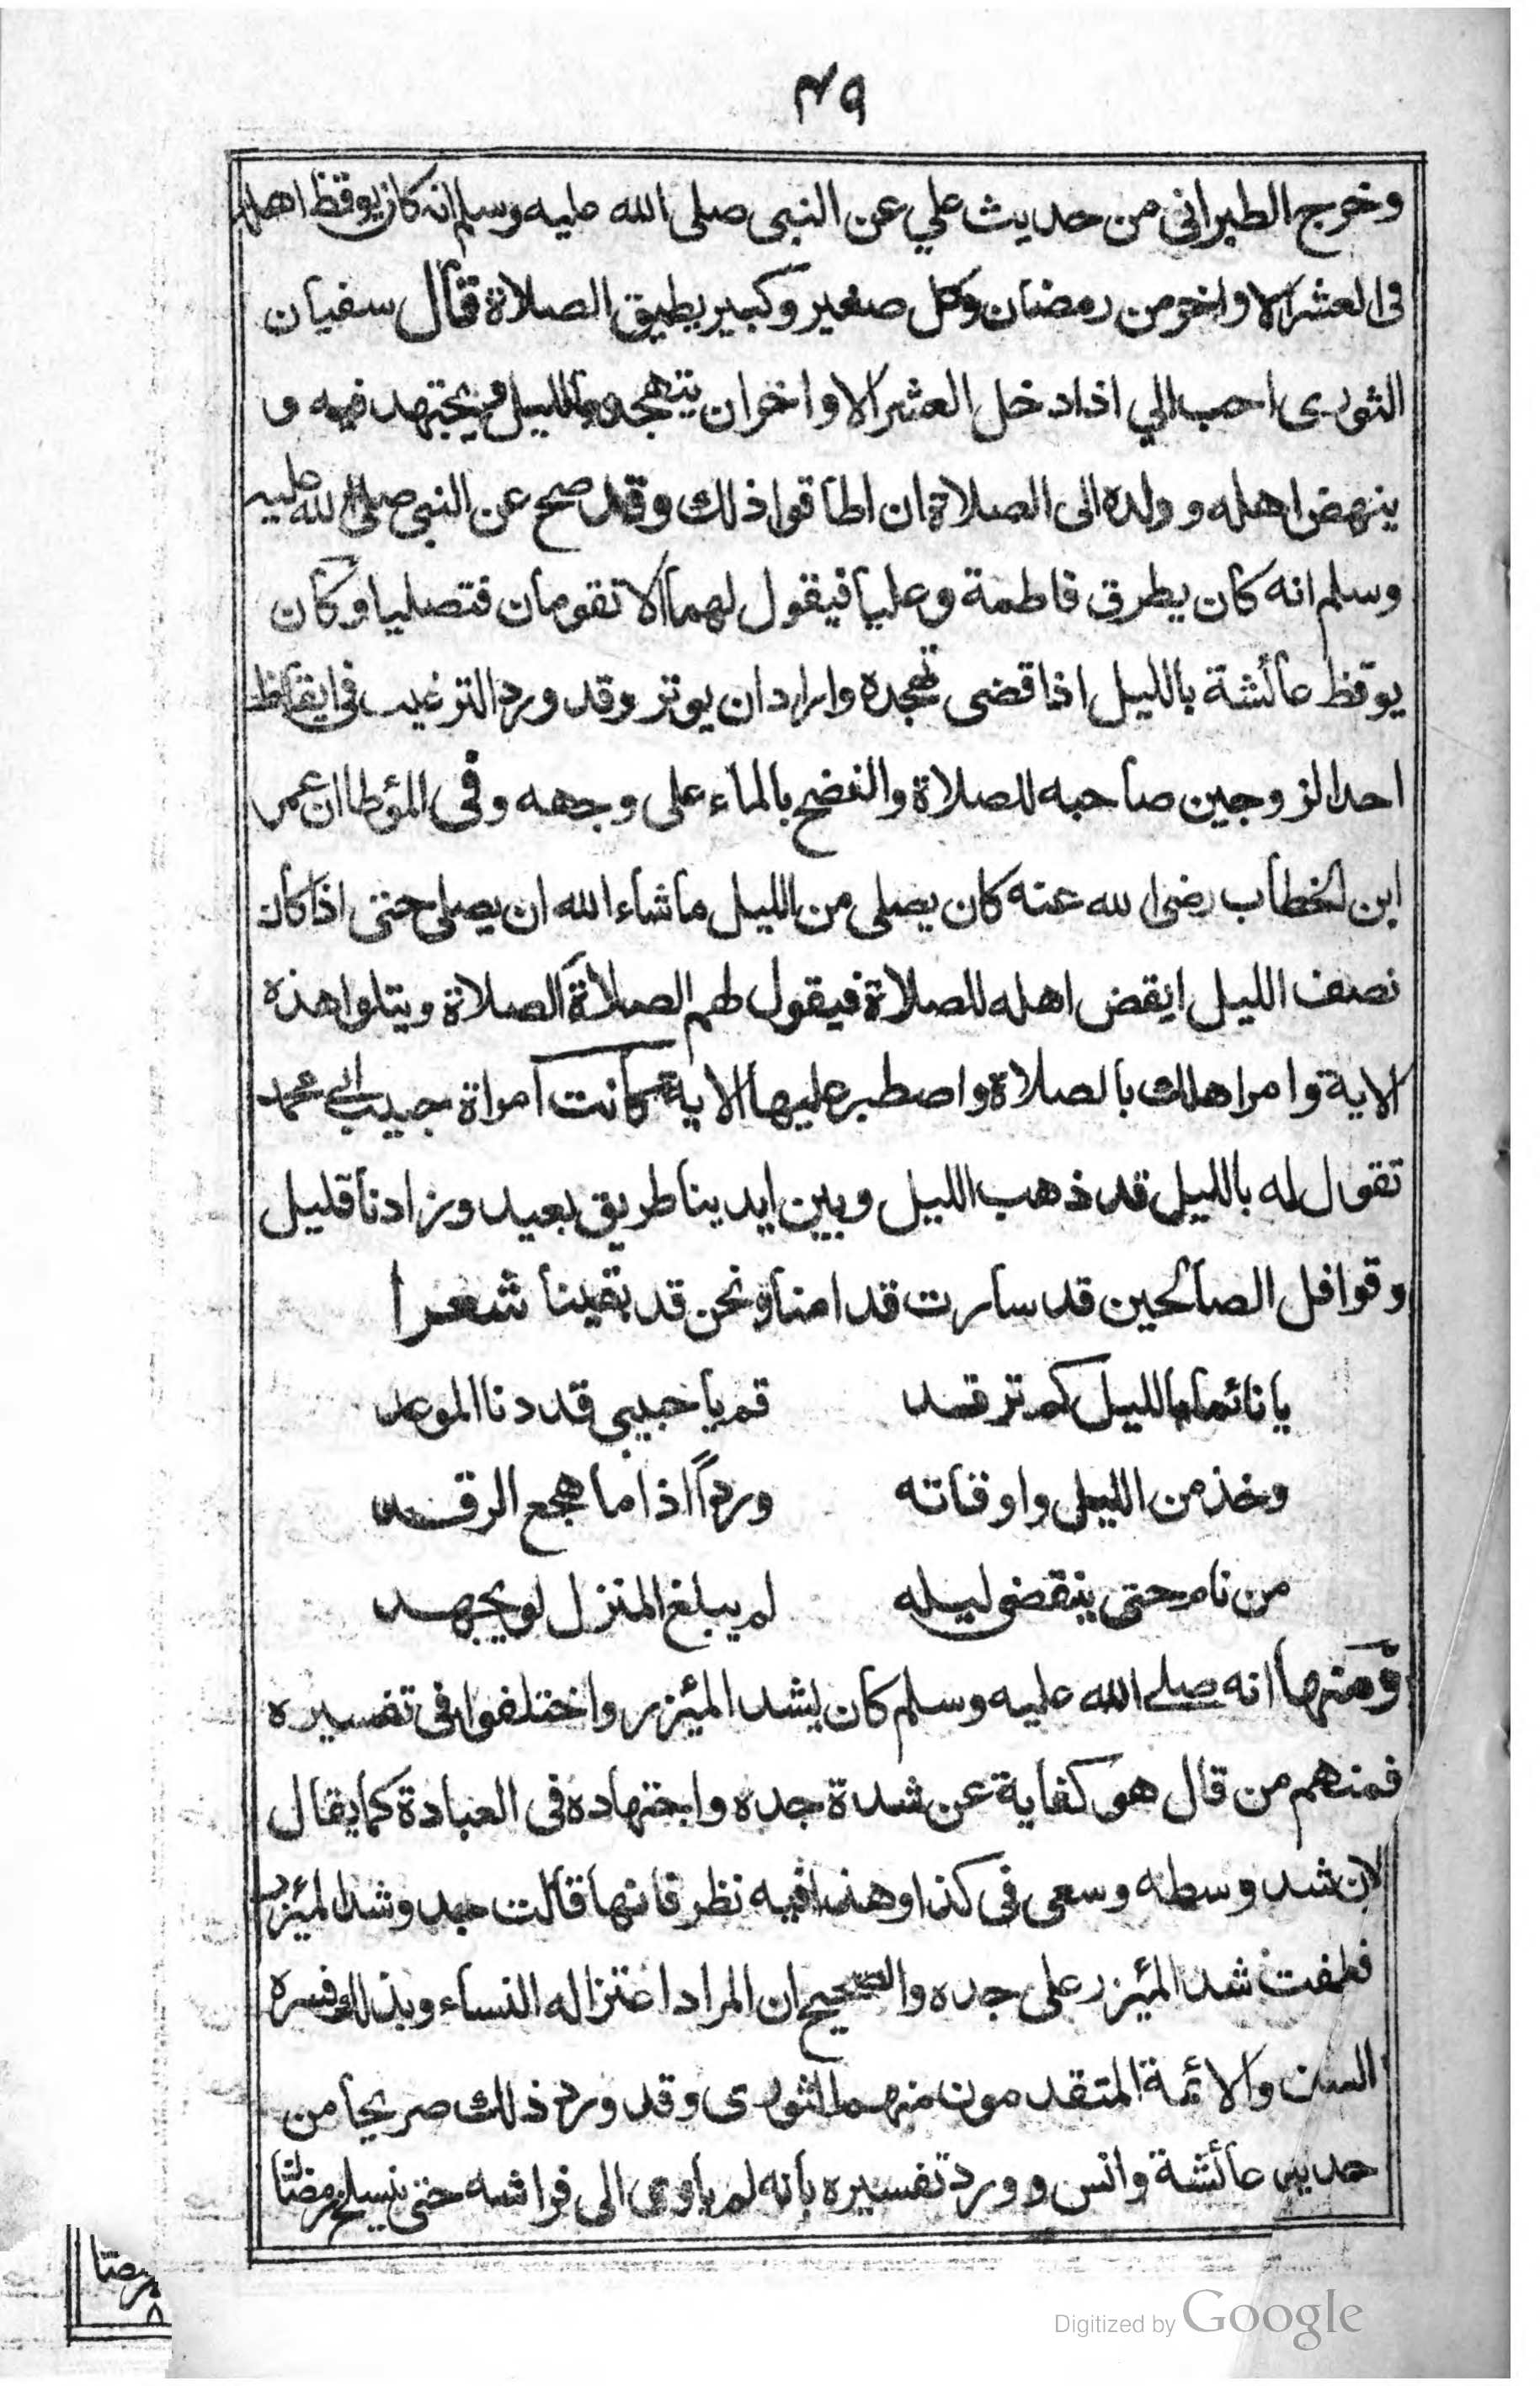 ۴۹
وخرج الطبرانى من حديث علي عن النبى صلى الله عليه وسلم انه كان يوقظ اهله
فى العشر الاواخر من رمضان وكل صغير وكبير يطيق الصلاة قال سفيان
الثورى احب الي اذا دخل العشر الاواخر ان يتهجد بالليل ويجتهد فيه و
ينهض اهله وولده الى الصلاة ان اطاقوا ذلك وقد صح عن النبى صلى الله عليه
وسلم انه كان يطرق فاطمة وعليا فيقول لهما الا تقومان فتصليا وكان
يوقظ عائشة بالليل اذا قضى تهجده واراد ان يوتر وقد ورد الترغيب فى ايقاظ
احد الزوجين صاحبه للصلاة والنضح بالماء على وجهه وفى المؤطا ان عمر
ابن الخطاب رضى الله عنه كان يصلى من الليل ماشاء الله ان يصلى حتى اذا كان
نصف الليل ايقض اهله للصلاة فيقول لهم الصلاة الصلاة ويتلوا هذه
الاية وامر اهلك بالصلاة واصطبر عليها الاية كانت امراة حبيب ابي محمد
تقول له بالليل قد ذهب الليل وبين ايدينا طريق بعيد وزادنا قليل
وقوافل الصالحين قد سارت قدامنا ونحن قد بقينا شعرا
يا نائما بالليل كم ترقد قم يا حبيبى قد دنا الموعد
وخذ من الليل واوقاته وردًا اذا ما هجع الرقد
من نام حتى ينقضى ليله لم يبلغ المنزل لو يجهد
ومنها انه صلى الله عليه وسلم كان يشد الميئزر واختلفوا فى تفسيره
فمنهم من قال هو كفاية عن شدة جده واجتهاده فى العبادة كما يقال
لان شد وسطه وسعى فى كذا وهذا فيه نظر فانها قالت جد وشد الميئزر
فطفت شد الميئزر على جده والصحيح ان المراد اعتزاله النساء وبذلك فسره
السلف والائمة المتقدمون منهم الثورى وقد ورد ذلك صريحا من
حديث عائشة وانس وورد تفسيره بانه لم ياوى الى فراشه حتى ينسلخ رمضان
Digitized by Google